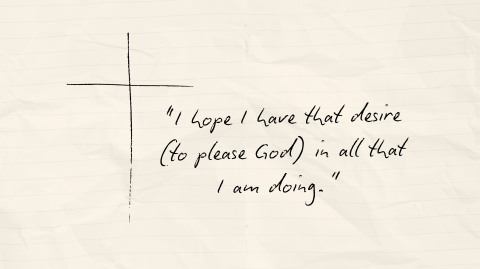 "I hope I have that desire
(to please God) in all that
I am doing."